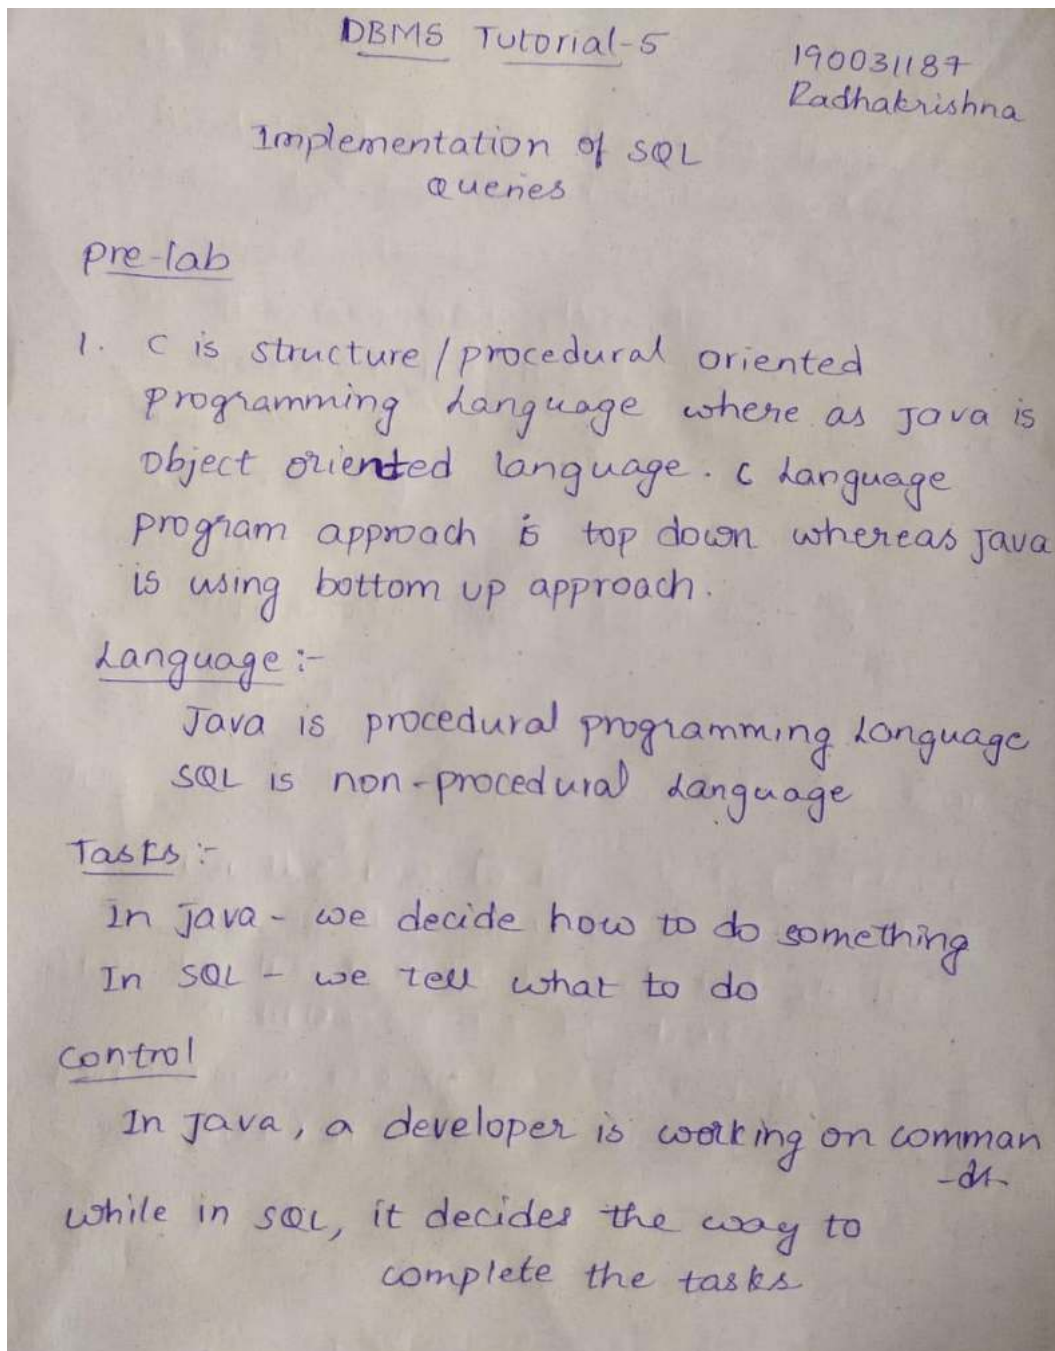 DBMS Tutorial-5
190031187
Radhakrishna
Implementation of SQL
queries
pre-lab
1. C is structure/procedural oriented
programming Language where as Java is
object oriented language. C Language
program approach is top down whereas Java
is using bottom up approach.
Language :-
Java is procedural programming Language
SQL is non-procedural Language
Tasks :-
In java - we decide how to do something
In SQL - we tell what to do
control
In Java, a developer is working on comman
-ds-
while in SQL, it decides the way to
complete the tasks